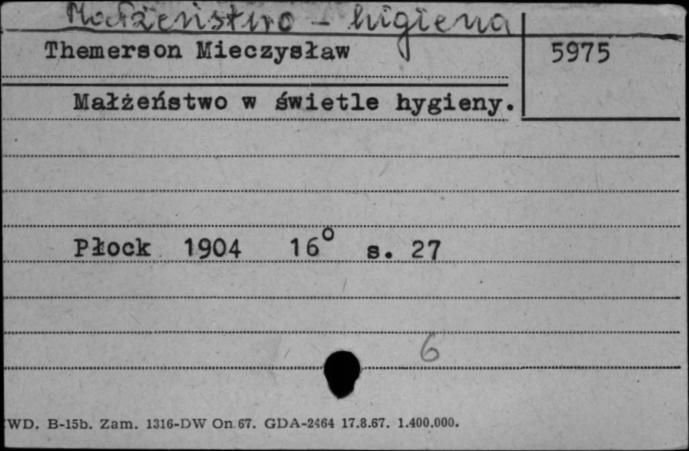 Małżeństwo - higiena
Themerson Mieczysław
5975
Małżeństwo w świetle hygieny.
Płock 1904 16° s. 27
6
WD. B-15b. Zam. 1316-DW On 67. GDA-2464 17.8.67. 1.400.000.